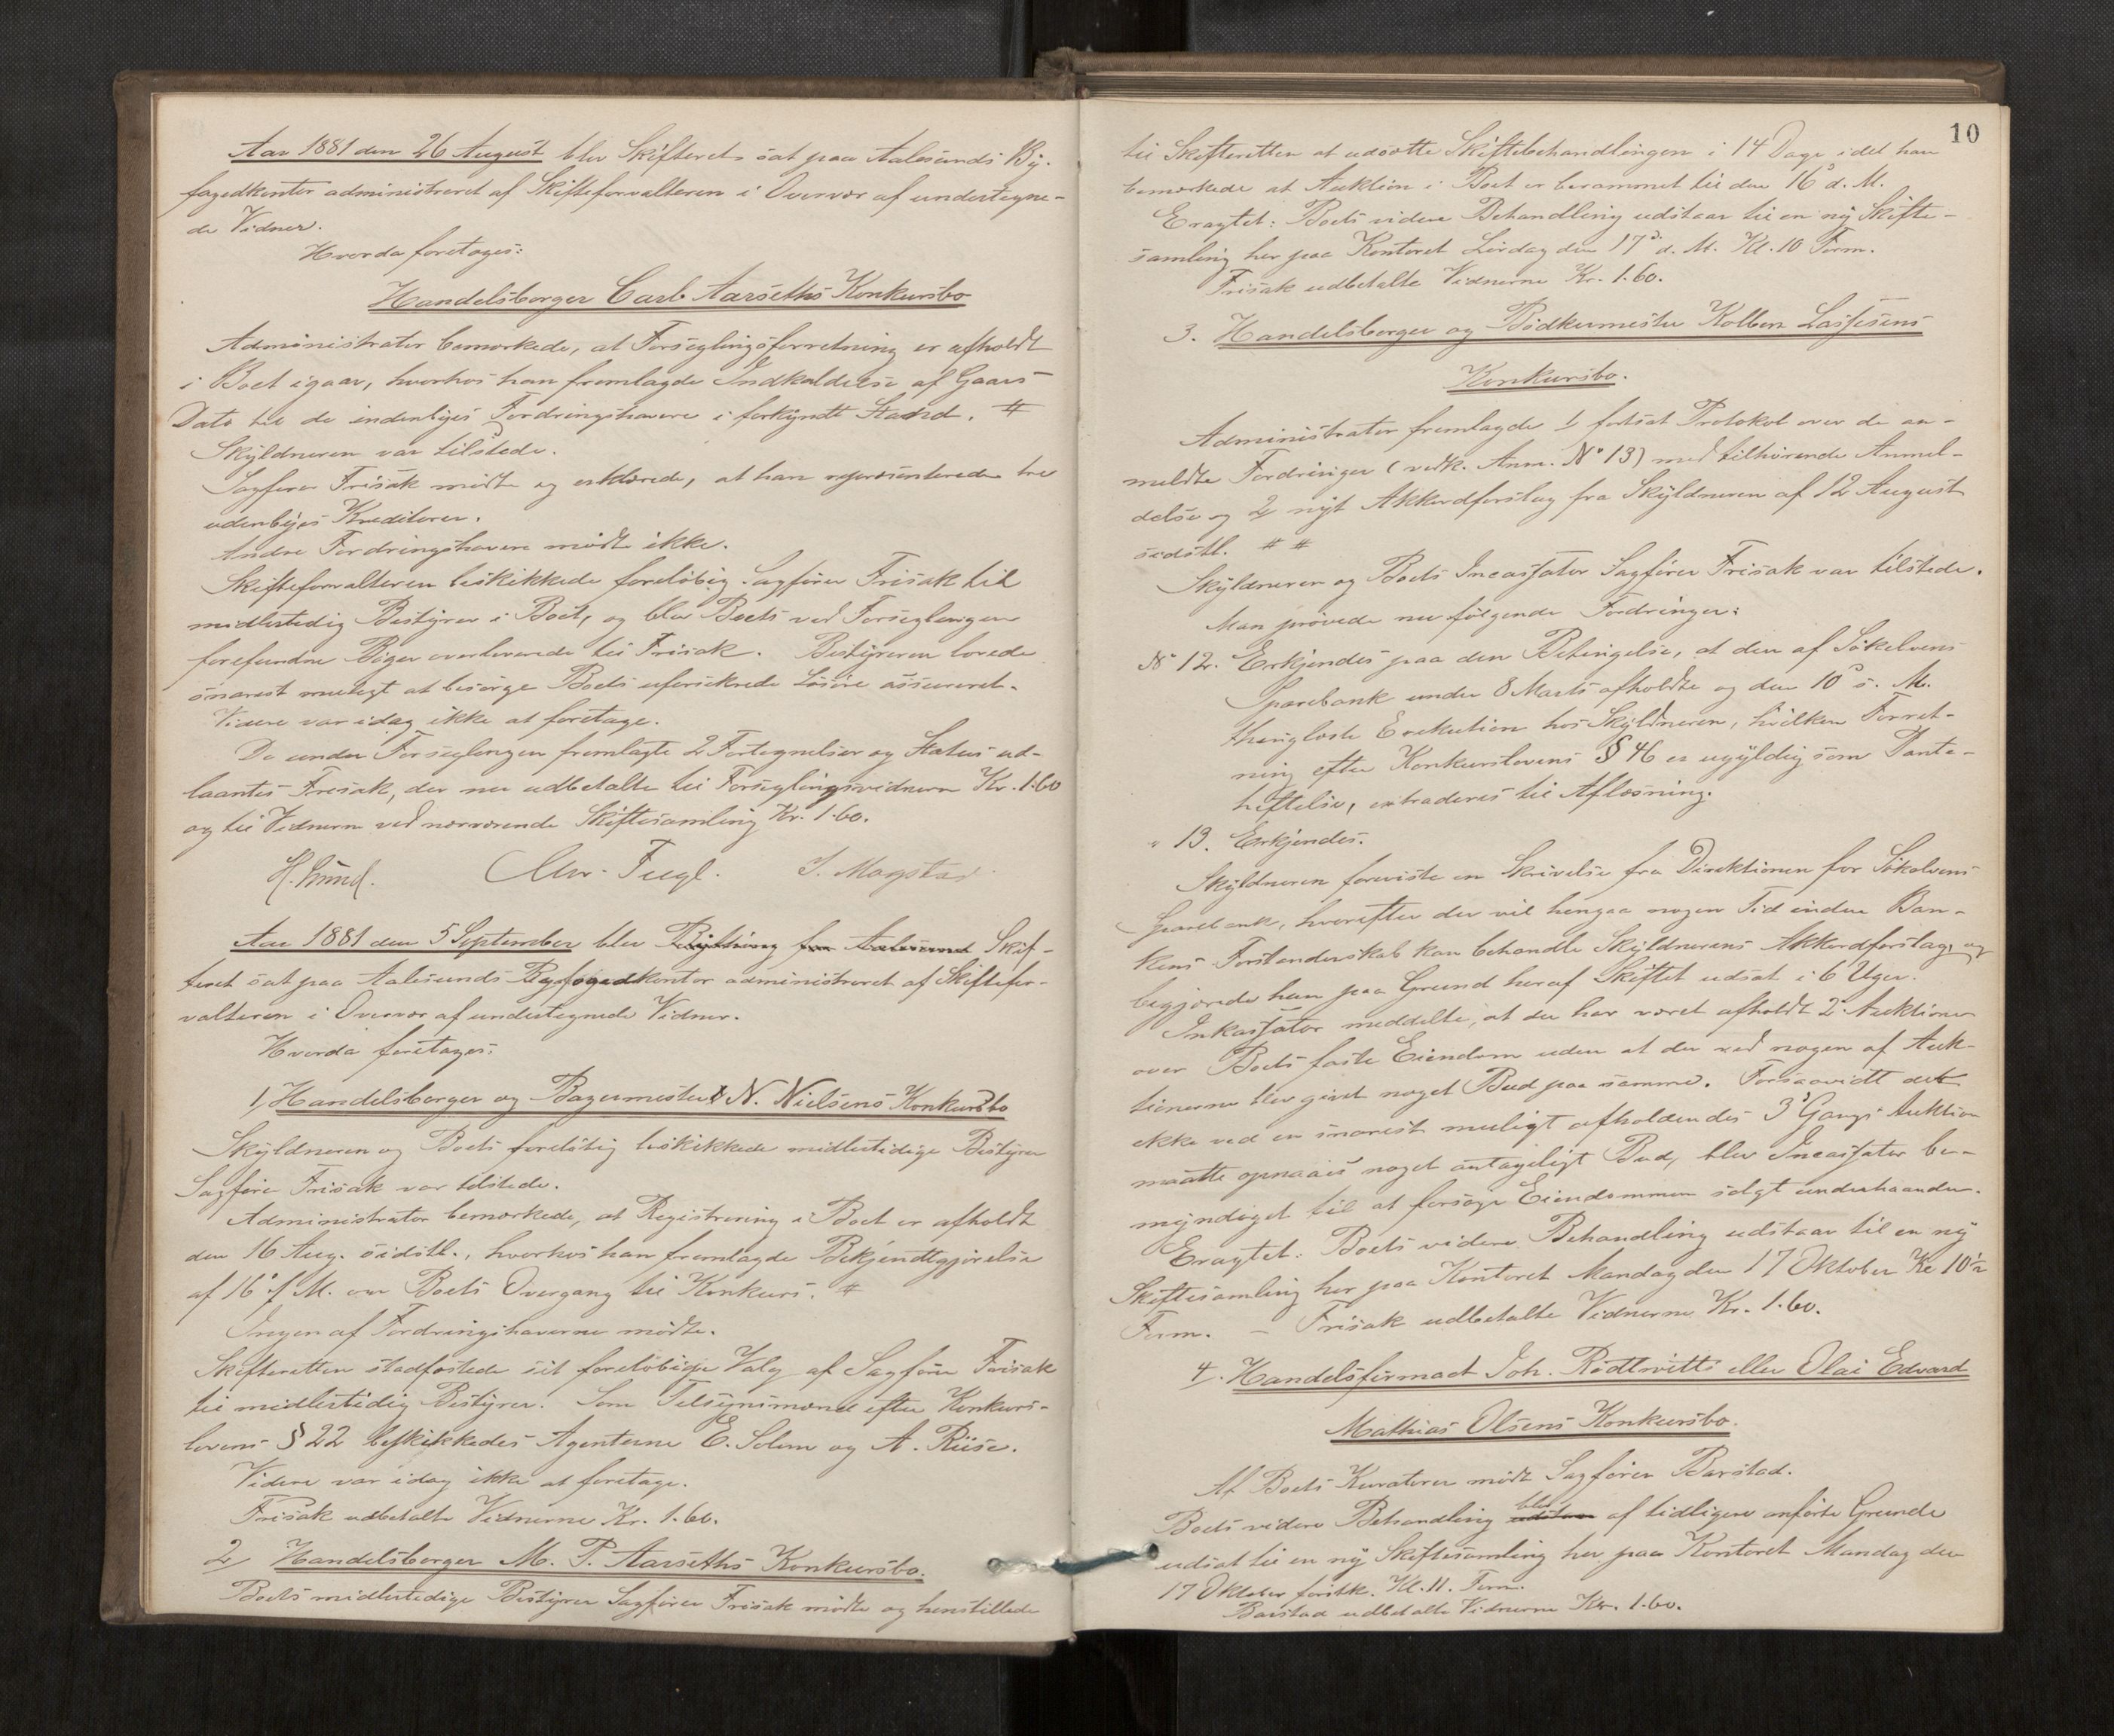 Aar 1881 den 26 August blev Skifteret sat paa Aalesunds By-
fogedkontor administreret af Skifteforvalteren i Overvær af undertegne-
de Vidner.
Hvorda foretoges:
Handelsborger Carl Aarseths Konkursbo
Administrator bemærkede, at Forseglingsforretning er afholdt
i Boet igaar, hvorhos han fremlagde Indkaldelse af Gaars
Dato til de indenbyes Fordringshavere i forkyndt Stand. #
Skyldneren var tilstede.
Sagfører Frisak mødte og erklærede, at han repræsenterede tre
udenbyes Kreditorer.
Andre Fordringshavere mødte ikke.
Skifteforvalteren beskikkede foreløbig Sagfører Frisak til
midlertidig Bestyrer i Boet, og blev Boets ved Forseglingen
forefundne Bøger overleverede til Frisak. Bestyreren lovede
snarest muligt at besørge Boets uforsikrede Løsøre assureret.
Videre var idag ikke at foretage.
De under Forseglingen fremlagte 2 Fortegnelser og Status ud-
laantes Frisak, der nu udbetalte til Forseglingsvidnerne Kr. 1.60
og til Vidnerne ved nærværende Skiftesamling Kr. 1.60.
H. Lund. Chr. Fugl. J. Magstad
Aar 1881 den 5 September blev Bything for Aalesund Skif-
teret sat paa Aalesunds Byfogedkontor administreret af Skiftefor-
valteren i Overvær af undertegnede Vidner.
Hvorda foretoges:
1, Handelsborger og Bagermester N. Nielsens Konkursbo
Skyldneren og Boets foreløbig beskikkede midlertidige Bestyrer
Sagfører Frisak var tilstede.
Administrator bemærkede, at Registrering i Boet er afholdt
den 16 Aug. sidstl., hvorhos han fremlagde Bekjendtgjørelse
af 16 f. M. om Boets Overgang til Konkurs. #
Ingen af Fordringshaverne mødte.
Skifteretten stadfæstede sit foreløbige Valg af Sagfører Frisak
til midlertidig Bestyrer. Som Tilsynsmænd efter Konkurs-
lovens § 22 beskikkedes Agenterne E. Solem og A. Riise.
Videre var idag ikke at foretage.
Frisak udbetalte Vidnerne Kr. 1.60.
2, Handelsborger M. P. Aarseths Konkursbo.
Boets midlertidige Bestyrer Sagfører Frisak mødte og henstillede
10
til Skifteretten at udsætte Skiftebehandlingen i 14 Dage idet han
bemærkede at Auktion i Boet er berammet til den 16 d. M.
Eragtet: Boets videre Behandling udstaar til en ny Skifte-
samling her paa Kontoret Lørdag den 17 d. M. Kl. 10 Form.
Frisak udbetalte Vidnerne Kr. 1.60.
3. Handelsborger og Bødkermester Kolben Lassesens
Konkursbo.
Administrator fremlagde 1, fortsat Protokol over de an-
meldte Fordringer (vedk. Anm. No 13) med tilhørende Anmel-
delse og 2, nyt Akkordforslag fra Skyldneren af 12 August
sidstl. # #
Skyldneren og Boets Incassator Sagfører Frisak var tilstede.
Man prøvede nu følgende Fordringer:
No 12. Erkjendes paa den Betingelse, at den af Søkelvens
Sparebank under 8 Marts afholdte og den 10 s. M.
thinglæste Exekution hos Skyldneren, hvilken Forret-
ning efter Konkurslovens § 46 er ugyldig som Pante-
heftelse, extraderes til Aflæsning.
" 13. Erkjendes.
Skyldneren foreviste en Skrivelse fra Direktionen for Søkelvens
Sparebank, hvorefter der vil hengaa nogen Tid inden Ban-
kens Forstanderskab kan behandle Skyldnerens Akkordforslag, og
begjærede han paa Grund heraf Skiftet udsat i 6 Uger.
Inkassator meddelte, at der har været afholdt 2 Auktioner
over Boets faste Eiendom uden at der ved nogen af Auk-
tionerne blev givet noget Bud paa samme. Forsaavidt det
ikke ved en snarest muligt afholdendes 3 Gangs Auktion
maatte opnaaes noget antageligt Bud, blev Incassator be-
myndiget til at forsøge Eiendommen solgt underhaanden.
Eragtet: Boets videre Behandling udstaar til en ny
Skiftesamling her paa Kontoret Mandag den 17 Oktober Kl 10 1/2
Form. – Frisak udbetalte Vidnerne Kr. 1.60.
4. Handelsfirmaet Joh. Rødtwitts eller Olai Edvard
Mathias Olsens Konkursbo.
Af Boets Kuratorer mødte Sagfører Barstad.
Boets videre Behandling udstaar blev af tidligere anførte Grunde
udsat til en ny Skiftesamling her paa Kontoret Mandag den
17 Oktober førstk. Kl. 11. Form.
Barstad udbetalte Vidnerne Kr. 1.60.